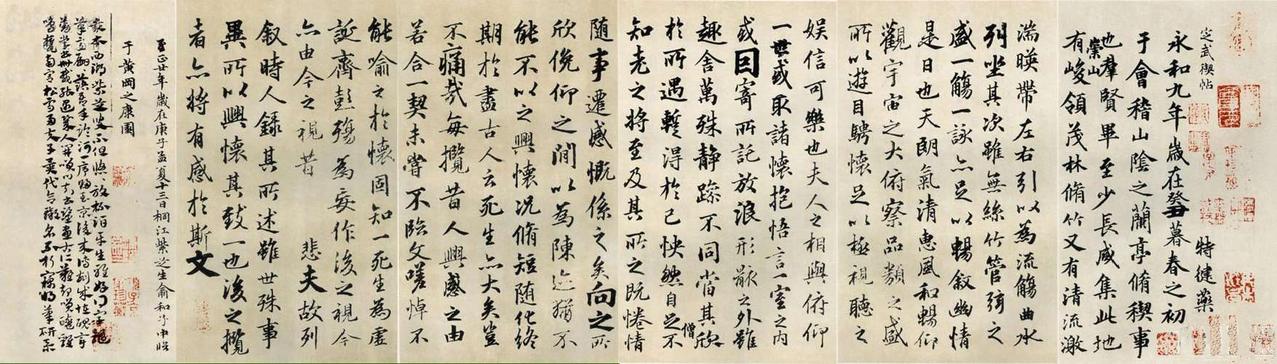 定武禊帖
特健藥
永和九年歲在癸丑暮春之初
于會稽山陰之蘭亭脩稧事
也羣賢畢至少長咸集此地
有崇山峻領茂林脩竹又有清流激
湍暎帶左右引以為流觴曲水
列坐其次雖無絲竹管弦之
盛一觴一詠亦足以暢敘幽情
是日也天朗氣清惠風和暢仰
觀宇宙之大俯察品類之盛
所以遊目騁懷足以極視聽之
娛信可樂也夫人之相與俯仰
一世或取諸懷抱悟言一室之內
或因寄所託放浪形骸之外雖
趣舍萬殊靜躁不同當其欣
僧
於所遇蹔得於己怏然自足不
知老之將至及其所之既惓情
隨事遷感慨係之矣向之所
欣俛仰之間以為陳迹猶不
能不以之興懷況脩短隨化終
期於盡古人云死生亦大矣豈
不痛哉每攬昔人興感之由
若合一契未嘗不臨文嗟悼不
能喻之於懷固知一死生為虛
誕齊彭殤為妄作後之視今
亦由今之視昔 悲夫故列
敘時人錄其所述雖世殊事
異所以興懷其致一也後之攬
者亦將有感於斯文
至正廿年歲在庚子孟夏十三日桐江紫芝生俞和子中臨
于黃岡之康園